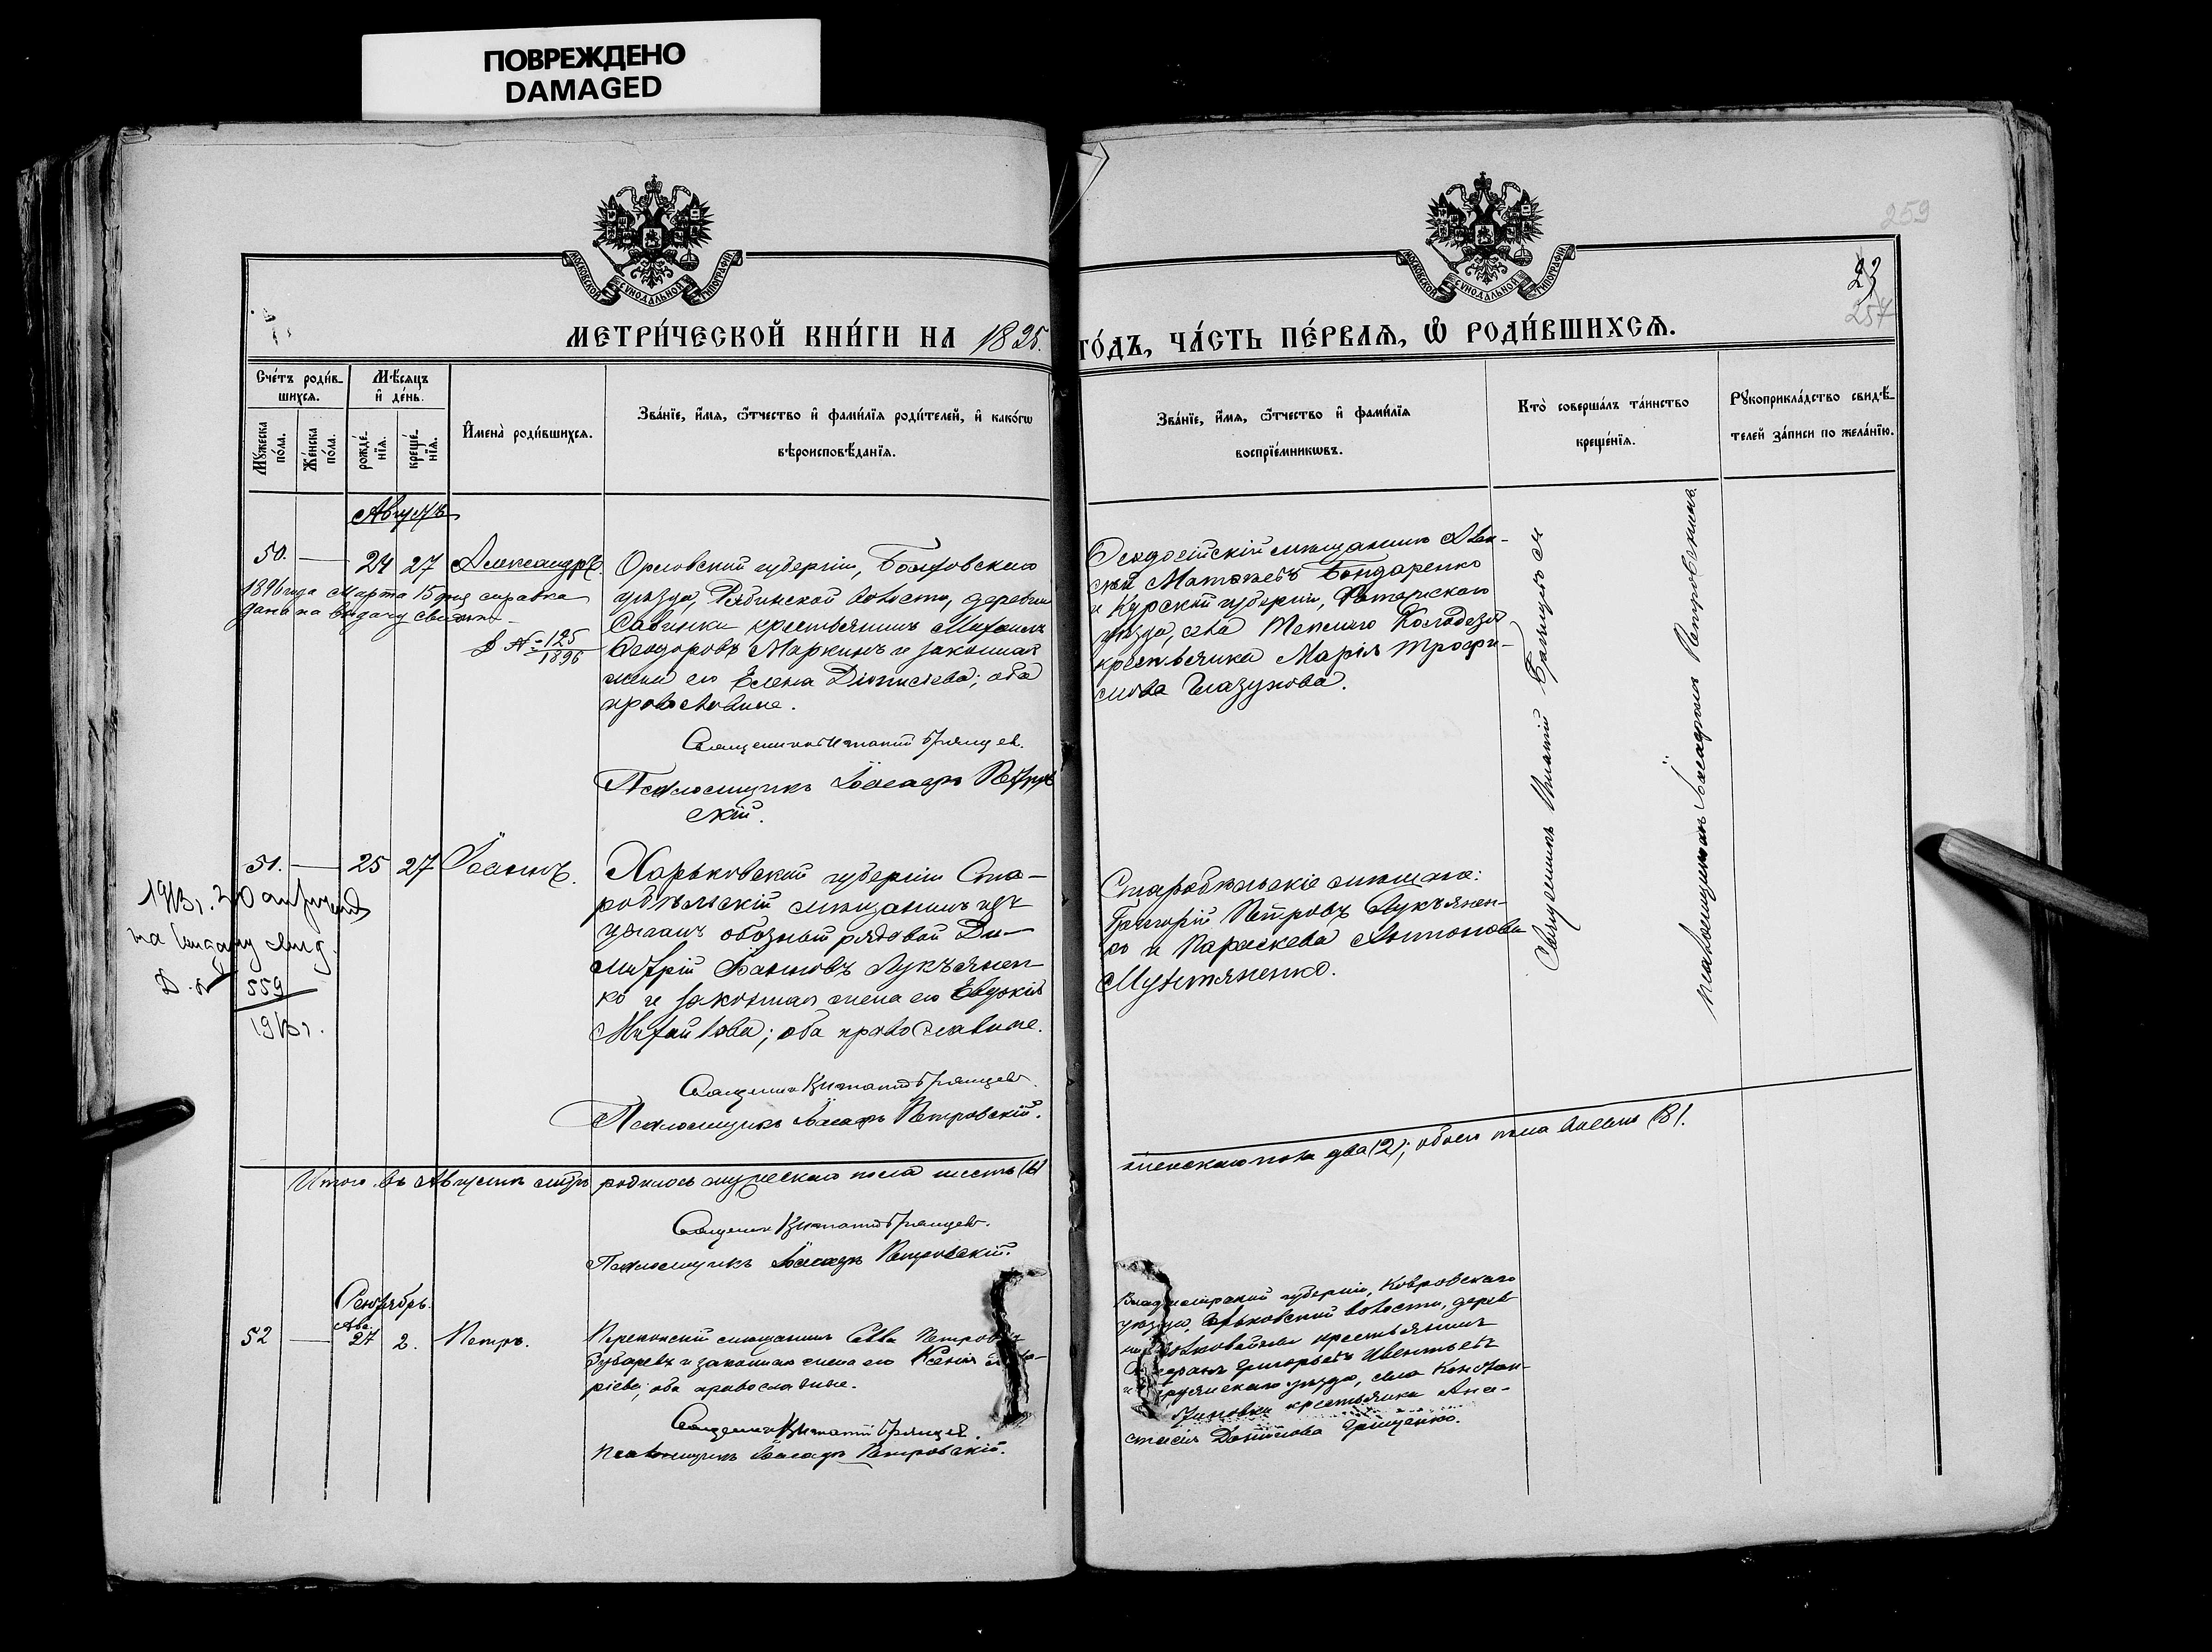 ПОВРЕЖДЕНО
DAMAGED
259
23
257
МОСКОВСКОЙ СУНОДАЛЬНОЙ ТИПОГРАФІИ
МОСКОВСКОЙ СУНОДАЛЬНОЙ ТИПОГРАФІИ
МЕТРИ́ЧЕСКОЙ КНИ́ГИ НА 1895.
ГО́ДЪ, ЧА́СТЬ ПЕ́РВАѦ, Ѡ҆ РОДИ́ВШИХСѦ.
Сче́тъ роди́в-
шихсѧ.
Мѣ́сѧцъ
и҆ де́нь.
Мꙋ́жеска
по́ла.
Же́нска
по́ла.
рожде́-
нїѧ.
креще́-
нїѧ.
И҆мена̀ роди́вшихсѧ.
Зва́нїе, и҆́мѧ, ѻ҆́тчество и҆ фами́лїѧ роди́телей, и҆ како́гѡ
вѣроисповѣ́данїѧ.
Зва́нїе, и҆́мѧ, ѻ҆́тчество и҆ фами́лїѧ
воспрїе́мникѡвъ.
Кто̀ соверша́лъ та́инство
креще́нїѧ.
Рꙋкоприкла́дство свидѣ́-
телей за́писи по жела́нїю.
Августъ
50. — 24 27 Александръ.
1896 года Марта 15 дня справка
дана на выдачу свидѣт.
Д № 125
1896
Орловской губерніи, Болховского
уѣзда, Рябинской волости, деревни
Савинки крестьянинъ Михаилъ
Ѳеодоровъ Маркинъ и законная
жена его Елена Діонисіева; оба
православные.
Священникъ Игнатій Брянцев.
Псаломщикъ Іоасафъ Петров
скій.
Ѳеодосійскій мѣщанинъ Алек-
сѣй Матвѣевъ Бондаренко
и Курской губерніи, Фатежского
уѣзда, села Теплаго Колодезя
крестьянка Марія Трофи-
мова Глазунова.
Священникъ Игнатій Брянцевъ
псаломщикъ Іоасафъ Петровскій
51. — 25 27 Іоаннъ.
1913 г. 30 апрѣля
на выдачу свид.
Д. № 559
1913 г.
Харьковской губерніи Ста-
робѣльскій мѣщанинъ
обозный рядовой Ди-
митрій Іоанновъ Лукьянен-
ко и законная жена его Евдокія
Михайлова; оба православные.
Священникъ Игнатій Брянцевъ.
Псаломщикъ Іоасафъ Петровскій.
Старобѣльскіе мѣщане:
Григорій Петровъ Лукьянен-
ко и Параскева Антонова
Мультяненко.
Итого въ Августѣ мцѣ родилось мужескаго пола шесть (6)
женскаго пола два (2); обоего пола восемь (8).
Священникъ Игнатій Брянцевъ.
Псаломщикъ Іоасафъ Петровскій.
Сентябрь.
Авг.
52 — 27 2. Петръ.
Перекопскій мѣщанинъ Савва Петровъ
Зубаревъ и законная жена его Ксенія
ріева; оба православные.
Священникъ Игнатій Брянцев.
Псаломщикъ Іоасафъ Петровскій.
Владимірской губерніи, Ковровскаго
уѣзда, волости, дерев
крестьянинъ
Григорьевъ
уѣзда, села Констан-
тиновки крестьянка Ана-
стасія Данилова Грищенко.